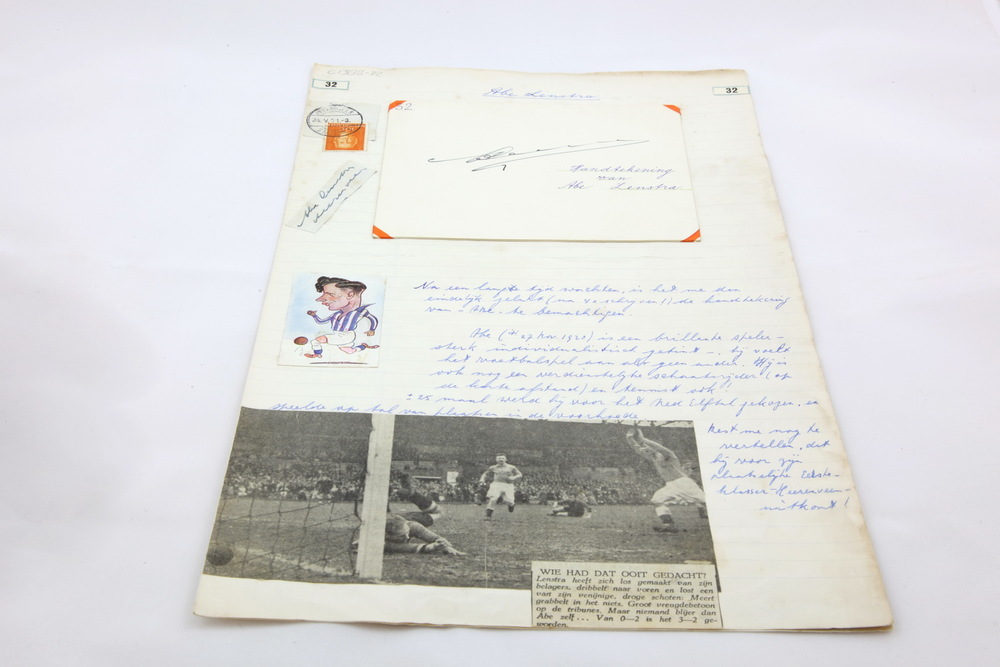 32
32
Abe Lenstra
32.
Handtekening
van
Abe Lenstra
Abe Lenstra
Heerenveen
Na een lange tijd wachten, is het me dan
eindelijk gelukt (na schrijven!) de handtekening
van "Abe" te bemachtigen.
Abe (27 Nov 1920) is een brillente speler -
sterk individualistisch getint -. hij voelt
het voetbalspel aan als geen ander. Hij is
ook nog een verdienstelijke schaatsrijder (op
de korte afstand) en tennist ook!
maal werd hij voor het Ned Elftal gekozen, en
speelde op tal van plaatsen in de voorhoede.
Rest me nog te
vertellen, dat
hij voor zijn
plaatselijke Eerste-
klasser Heerenveen -
uitkomt!
WIE HAD DAT OOIT GEDACHT?
Lenstra heeft zich los gemaakt van zijn
belagers, dribbelt naar voren en lost een
van zijn venijnige, droge schoten: Meert
grabbelt in het niets. Groot vreugdebetoon
op de tribunes. Maar niemand blijer dan
Abe zelf... Van 0—2 is het 3—2 ge-
worden.